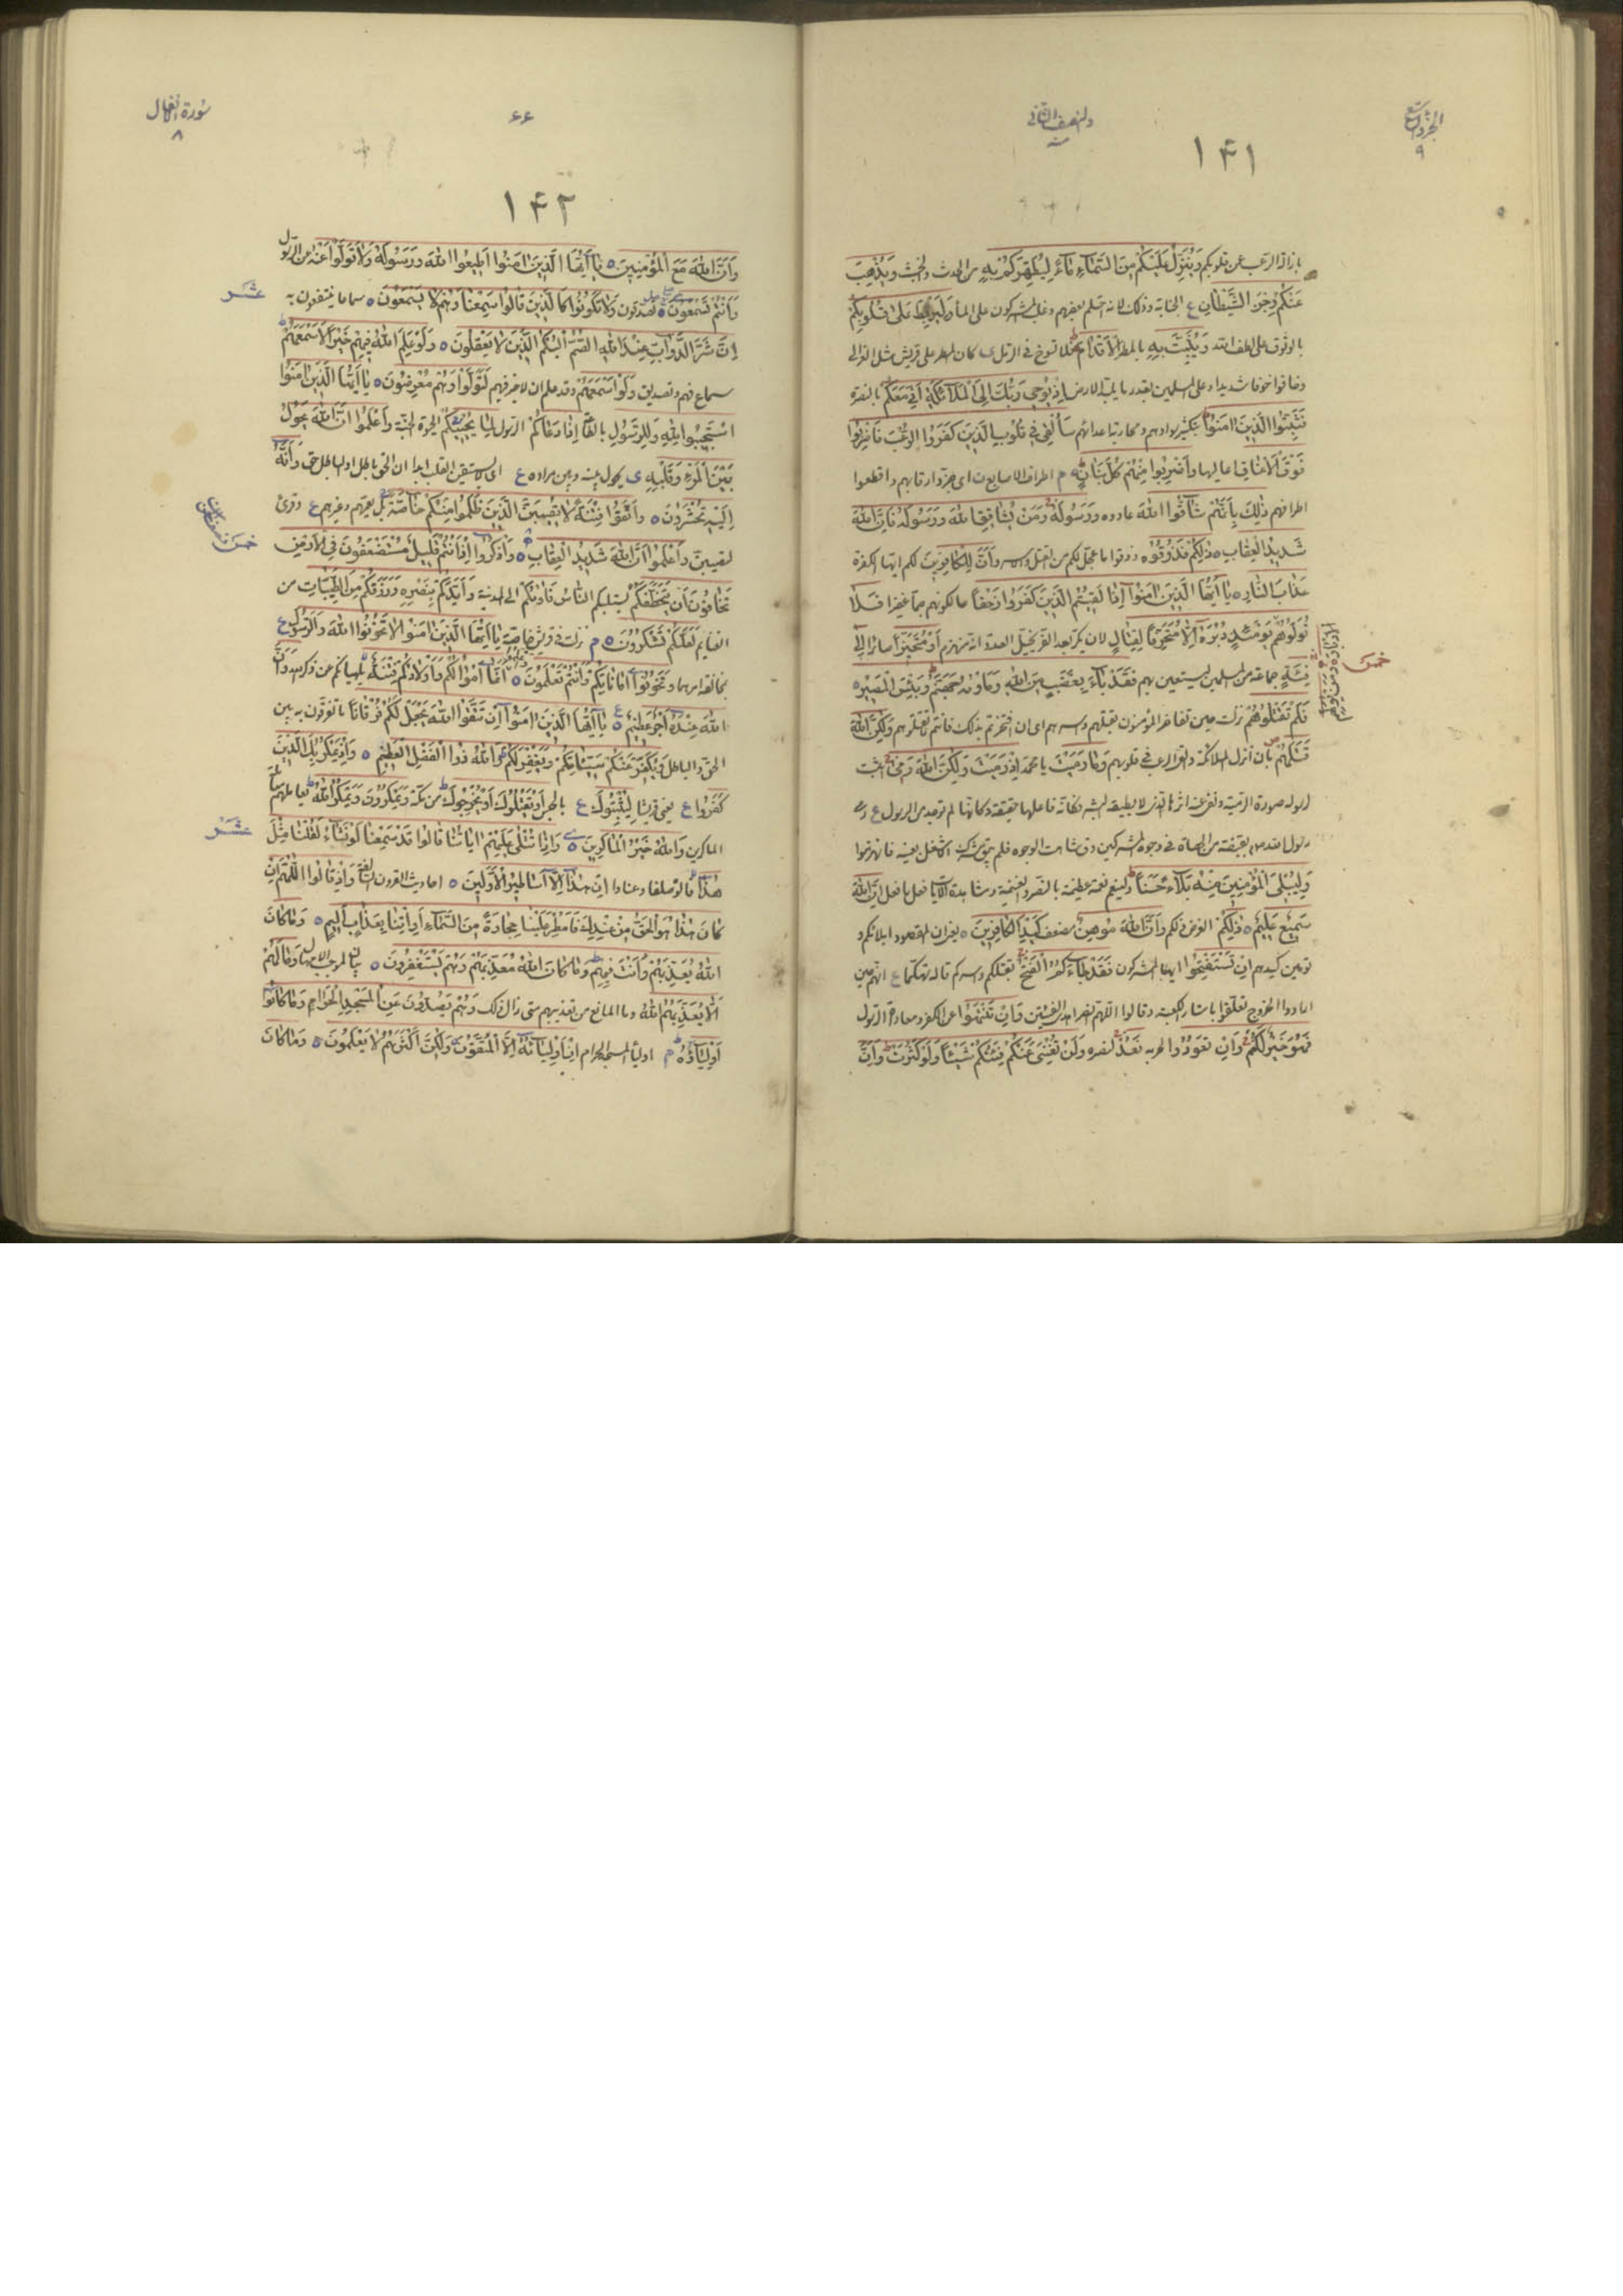 الجزو التاسع
٩
والنصف الثاني
١۴١
بازالة الرعب عن قلوبكم وَيُنَزِّلُ عَلَيْكُم مِنَ السَّمَاءِ مَاءً لِيُطَهِّرَكُمْ بِهِ من الحدث والخبث وَيُذْهِبَ
عَنْكُمْ رِجْزَ الشَّيْطَانِ ع الجنابة وذلك لانه احتلم بعضهم وغلب المشركون على الماء وَلِيَرْبِطَ عَلَىٰ قُلُوبِكُمْ
بالوثوق على لطف الله وَيُثَبِّتَ بِهِ بالمطر الْأَقْدَامَ لا تسوخ في الرمل ى كان المطر على قريش مثل
وخافوا خوفا شديدا وعلى المسلمين بقدر ما يلبد الارض إِذْ يُوحِي رَبُّكَ إِلَى الْمَلَائِكَةِ أَنِّي مَعَكُمْ بالنصرة
فَثَبِّتُوا الَّذِينَ آمَنُوا بتكثير سوادهم ومحاربة اعدائهم سَأُلْقِي فِي قُلُوبِ الَّذِينَ كَفَرُوا الرُّعْبَ فَاضْرِبُوا
فَوْقَ الْأَعْنَاقِ اعاليها وَاضْرِبُوا مِنْهُمْ كُلَّ بَنَانٍ م اطراف الاصابع اى جزوا رقابهم واقطعوا
اطرافهم ذَٰلِكَ بِأَنَّهُمْ شَاقُّوا اللهَ عادوه وَرَسُولَهُ وَمَنْ يُشَاقِقِ اللهَ وَرَسُولَهُ فَإِنَّ اللهَ
شَدِيدُ الْعِقَابِ ذَٰلِكُمْ فَذُوقُوهُ ذوقوا ما عجل لكم من القتل والاسر وَأَنَّ لِلْكَافِرِينَ لكم ايها الكفرة
عَذَابَ النَّارِ يَا أَيُّهَا الَّذِينَ آمَنُوا إِذَا لَقِيتُمُ الَّذِينَ كَفَرُوا زَحْفًا حالكونهم جما غفيرا فَلَا
تُوَلُّوهُمْ يَوْمَئِذٍ دُبُرَهُ إِلَّا مُتَحَرِّفًا لِقِتَالٍ لان يكر بعد الفر يخيل العدو انه منهزم أَوْ مُتَحَيِّزًا سائرا إِلَىٰ
خمس
فِئَةٍ جماعة من المسلمين ليستعين بهم فَقَدْ بَاءَ بِغَضَبٍ مِنَ اللهِ وَمَأْوَاهُ جَهَنَّمُ وَبِئْسَ الْمَصِيرُ
فَلَمْ تَقْتُلُوهُمْ نزلت حين تفاخر المؤمنون بقتلهم واسرهم اى ان افتخرتم بذلك فانتم لم تقتلوهم وَلَٰكِنَّ اللهَ
قَتَلَهُمْ بان أنزل الملائكة والقى الرعب في قلوبهم وَمَا رَمَيْتَ يا محمد إِذْ رَمَيْتَ وَلَٰكِنَّ اللهَ رَمَىٰ اثبت
وَلِيُبْلِيَ الْمُؤْمِنِينَ مِنْهُ بَلَاءً حَسَنًا ولينعم نعمة عظيمة بالنصر والغنيمة ومشاهدة الآيات فعل ما فعل إِنَّ اللهَ
سَمِيعٌ عَلِيمٌ ذَٰلِكُمْ الغرض ذلكم وَأَنَّ اللهَ مُوهِنُ مضعف كَيْدِ الْكَافِرِينَ يعني ان المقصود ابلائكم و
توهين كيدهم إِنْ تَسْتَفْتِحُوا ايها المشركون فَقَدْ جَاءَكُمُ الْفَتْحُ بقتلكم واسركم قاله تهكما ع انهم حين
ارادوا الخروج تعلقوا باستار الكعبة وقالوا اللهم انصر اهدى الفئتين وَإِنْ تَنْتَهُوا عن الكفر ومعاداة الرسول
فَهُوَ خَيْرٌ لَكُمْ وَإِنْ تَعُودُوا لحربه نَعُدْ لنصره وَلَنْ تُغْنِيَ عَنْكُمْ فِئَتُكُمْ شَيْئًا وَلَوْ كَثُرَتْ وَأَنَّ
سورة انفال
٨
۶۶
١۴٢
وَأَنَّ اللهَ مَعَ الْمُؤْمِنِينَ يَا أَيُّهَا الَّذِينَ آمَنُوا أَطِيعُوا اللهَ وَرَسُولَهُ وَلَا تَوَلَّوْا عَنْهُ عن الرسول
عشر
وَأَنْتُمْ تَسْمَعُونَ تصدقون وَلَا تَكُونُوا كَالَّذِينَ قَالُوا سَمِعْنَا وَهُمْ لَا يَسْمَعُونَ سماعا ينتفعون به
إِنَّ شَرَّ الدَّوَابِّ عِنْدَ اللهِ الصُّمُّ الْبُكْمُ الَّذِينَ لَا يَعْقِلُونَ وَلَوْ عَلِمَ اللهُ فِيهِمْ خَيْرًا لَأَسْمَعَهُمْ
سماع فهم وتصديق وَلَوْ أَسْمَعَهُمْ وقد علم ان لا خير فيهم لَتَوَلَّوْا وَهُمْ مُعْرِضُونَ يَا أَيُّهَا الَّذِينَ آمَنُوا
اسْتَجِيبُوا لِلهِ وَلِلرَّسُولِ بالطاعة إِذَا دَعَاكُمْ الرسول لِمَا يُحْيِيكُمْ الحيوة الجنة وَاعْلَمُوا أَنَّ اللهَ يَحُولُ
بَيْنَ الْمَرْءِ وَقَلْبِهِ ى يحول بينه وبين مراده ع اى لا يستيقن القلب ابدا ان الحق باطل او الباطل حق وَأَنَّهُ
إِلَيْهِ تُحْشَرُونَ وَاتَّقُوا فِتْنَةً لَا تُصِيبَنَّ الَّذِينَ ظَلَمُوا مِنْكُمْ خَاصَّةً بل يعمهم وغيرهم ع وقرئ
خمس
لتصيبن وَاعْلَمُوا أَنَّ اللهَ شَدِيدُ الْعِقَابِ وَاذْكُرُوا إِذْ أَنْتُمْ قَلِيلٌ مُسْتَضْعَفُونَ فِي الْأَرْضِ
تَخَافُونَ أَنْ يَتَخَطَّفَكُمُ يستلبكم النَّاسُ فَآوَاكُمْ الى المدينة وَأَيَّدَكُمْ بِنَصْرِهِ وَرَزَقَكُمْ مِنَ الطَّيِّبَاتِ من
الغنايم لَعَلَّكُمْ تَشْكُرُونَ م نزلت في قريش خاصة يَا أَيُّهَا الَّذِينَ آمَنُوا لَا تَخُونُوا اللهَ وَالرَّسُولَ ع
بمخالفة امرهما وَتَخُونُوا أَمَانَاتِكُمْ وَأَنْتُمْ تَعْلَمُونَ أَنَّمَا أَمْوَالُكُمْ وَأَوْلَادُكُمْ فِتْنَةٌ يلهيانكم عن ذكر الله وَأَنَّ
اللهَ عِنْدَهُ أَجْرٌ عَظِيمٌ يَا أَيُّهَا الَّذِينَ آمَنُوا إِنْ تَتَّقُوا اللهَ يَجْعَلْ لَكُمْ فُرْقَانًا ما تفرقون به بين
الحق والباطل وَيُكَفِّرْ عَنْكُمْ سَيِّئَاتِكُمْ وَيَغْفِرْ لَكُمْ وَاللهُ ذُو الْفَضْلِ الْعَظِيمِ وَإِذْ يَمْكُرُ بِكَ الَّذِينَ
كَفَرُوا ع يعني قريشا لِيُثْبِتُوكَ ع بالجرح أَوْ يَقْتُلُوكَ أَوْ يُخْرِجُوكَ من مكة وَيَمْكُرُونَ وَيَمْكُرُ اللهُ يعاملهم معاملة
عشر
الماكرين وَاللهُ خَيْرُ الْمَاكِرِينَ وَإِذَا تُتْلَىٰ عَلَيْهِمْ آيَاتُنَا قَالُوا قَدْ سَمِعْنَا لَوْ نَشَاءُ لَقُلْنَا مِثْلَ
هَٰذَا قالوه صلفا وعنادا إِنْ هَٰذَا إِلَّا أَسَاطِيرُ الْأَوَّلِينَ احاديث القرون السالفة وَإِذْ قَالُوا اللَّهُمَّ إِنْ
كَانَ هَٰذَا هُوَ الْحَقَّ مِنْ عِنْدِكَ فَأَمْطِرْ عَلَيْنَا حِجَارَةً مِنَ السَّمَاءِ أَوِ ائْتِنَا بِعَذَابٍ أَلِيمٍ وَمَا كَانَ
اللهُ لِيُعَذِّبَهُمْ وَأَنْتَ فِيهِمْ وَمَا كَانَ اللهُ مُعَذِّبَهُمْ وَهُمْ يَسْتَغْفِرُونَ بيان لموجب الامهال وَمَا لَهُمْ
أَلَّا يُعَذِّبَهُمُ اللهُ وما المانع من تعذيبهم متى زال ذلك وَهُمْ يَصُدُّونَ عَنِ الْمَسْجِدِ الْحَرَامِ وَمَا كَانُوا
أَوْلِيَاءَهُ م اولياء المسجد الحرام إِنْ أَوْلِيَاؤُهُ إِلَّا الْمُتَّقُونَ وَلَٰكِنَّ أَكْثَرَهُمْ لَا يَعْلَمُونَ وَمَا كَانَ